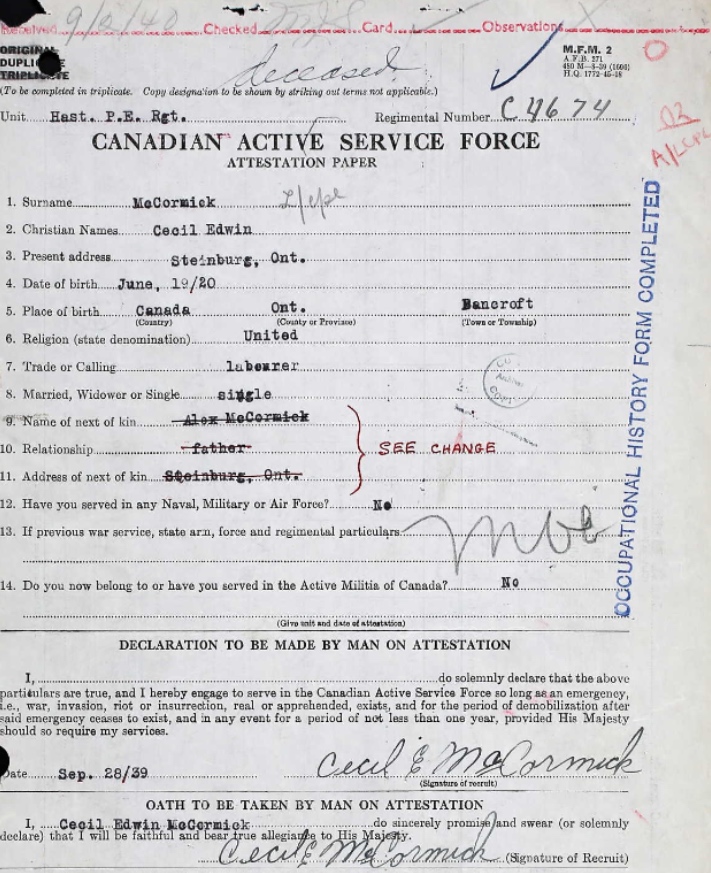 Received 9/2/40 Checked Card Observation X
ORIGINAL
DUPLICATE
TRIPLICATE
deceased.
M.F.M. 2
A.F.B. 271
H.Q. 1772-45-18
(To be completed in triplicate. Copy designation to be shown by striking out terms not applicable.)
Unit Hast. P.E. Rgt. Regimental Number C 4674
CANADIAN ACTIVE SERVICE FORCE
ATTESTATION PAPER
1. Surname McCormick L/cpl
2. Christian Names Cecil Edwin
3. Present address Steinburg, Ont.
4. Date of birth June, 19/20
5. Place of birth Canada Ont. Bancroft
(Country) (County or Province) (Town or Township)
6. Religion (state denomination) United
7. Trade or Calling labourer
8. Married, Widower or Single single
9. Name of next of kin Alex McCormick
10. Relationship father SEE CHANGE
11. Address of next of kin Steinburg, Ont.
12. Have you served in any Naval, Military or Air Force? No
13. If previous war service, state arm, force and regimental particulars
14. Do you now belong to or have you served in the Active Militia of Canada? No
(Give unit and date of attestation)
OCCUPATIONAL HISTORY FORM COMPLETED
DECLARATION TO BE MADE BY MAN ON ATTESTATION
I, do solemnly declare that the above
particulars are true, and I hereby engage to serve in the Canadian Active Service Force so long as an emergency,
i.e., war, invasion, riot or insurrection, real or apprehended, exists, and for the period of demobilization after
said emergency ceases to exist, and in any event for a period of not less than one year, provided His Majesty
should so require my services.
Date Sep. 28/39 Cecil E McCormick
(Signature of recruit)
OATH TO BE TAKEN BY MAN ON ATTESTATION
I, Cecil Edwin McCormick do sincerely promise and swear (or solemnly
declare) that I will be faithful and bear true allegiance to His Majesty.
Cecil E McCormick (Signature of Recruit)